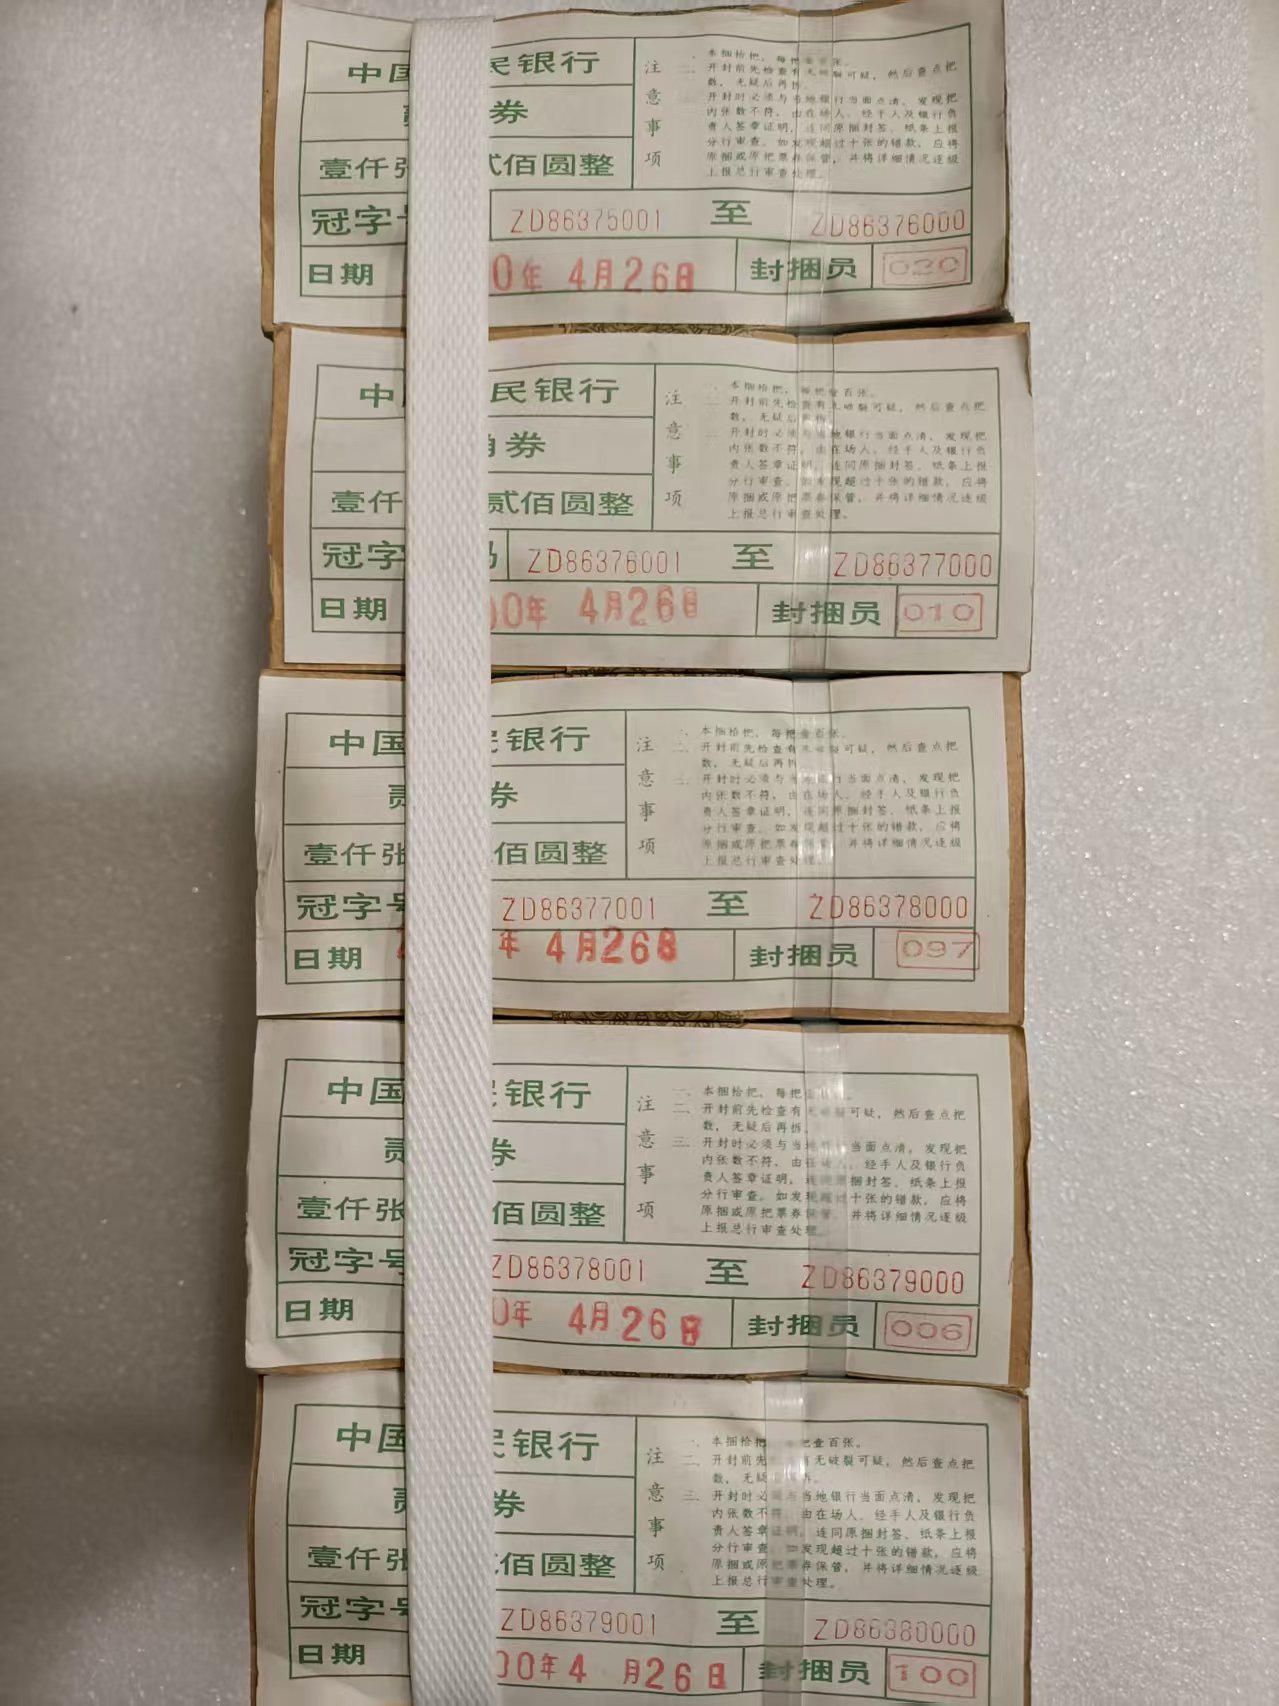 中国 民银行
券
壹仟张 贰佰圆整
注意事项
一、本捆拾把，每把壹百张。
二、开封前先检查有无破裂可疑，然后查点把
数，无疑后再拆。
三、开封时必须与当地银行当面点清，发现把
内张数不符，由在场人、经手人及银行负
责人签章证明，连同原捆封签、纸条上报
分行审查。如发现超过十张的错款，应将
原捆或原把票券保管，并将详细情况逐级
上报总行审查处理。
冠字号 ZD86375001 至 ZD86376000
日期 0年 4月26日 封捆员 020
中 民银行
角券
壹仟 贰佰圆整
注意事项
一、本捆拾把，每把壹百张。
二、开封前先检查有无破裂可疑，然后查点把
数，无疑后再拆。
三、开封时必须与当地银行当面点清，发现把
内张数不符，由在场人、经手人及银行负
责人签章证明，连同原捆封签、纸条上报
分行审查。如发现超过十张的错款，应将
原捆或原把票券保管，并将详细情况逐级
上报总行审查处理。
冠字 码 ZD86376001 至 ZD86377000
日期 00年 4月26日 封捆员 010
中国 民银行
贰 券
壹仟张 佰圆整
注意事项
一、本捆拾把，每把壹百张。
二、开封前先检查有无破裂可疑，然后查点把
数，无疑后再拆。
三、开封时必须与当地银行当面点清，发现把
内张数不符，由在场人、经手人及银行负
责人签章证明，连同原捆封签、纸条上报
分行审查。如发现超过十张的错款，应将
原捆或原把票券保管，并将详细情况逐级
上报总行审查处理。
冠字号 ZD86377001 至 ZD86378000
日期 年 4月26日 封捆员 097
中国 民银行
贰 券
壹仟张 佰圆整
注意事项
一、本捆拾把，每把壹百张。
二、开封前先检查有无破裂可疑，然后查点把
数，无疑后再拆。
三、开封时必须与当地银行当面点清，发现把
内张数不符，由在场人、经手人及银行负
责人签章证明，连同原捆封签、纸条上报
分行审查。如发现超过十张的错款，应将
原捆或原把票券保管，并将详细情况逐级
上报总行审查处理。
冠字号 ZD86378001 至 ZD86379000
日期 0年 4月26日 封捆员 006
中国 民银行
贰 券
壹仟张 贰佰圆整
注意事项
一、本捆拾把，每把壹百张。
二、开封前先检查有无破裂可疑，然后查点把
数，无疑后再拆。
三、开封时必须与当地银行当面点清，发现把
内张数不符，由在场人、经手人及银行负
责人签章证明，连同原捆封签、纸条上报
分行审查。如发现超过十张的错款，应将
原捆或原把票券保管，并将详细情况逐级
上报总行审查处理。
冠字号 ZD86379001 至 ZD86380000
日期 00年4 月26日 封捆员 100